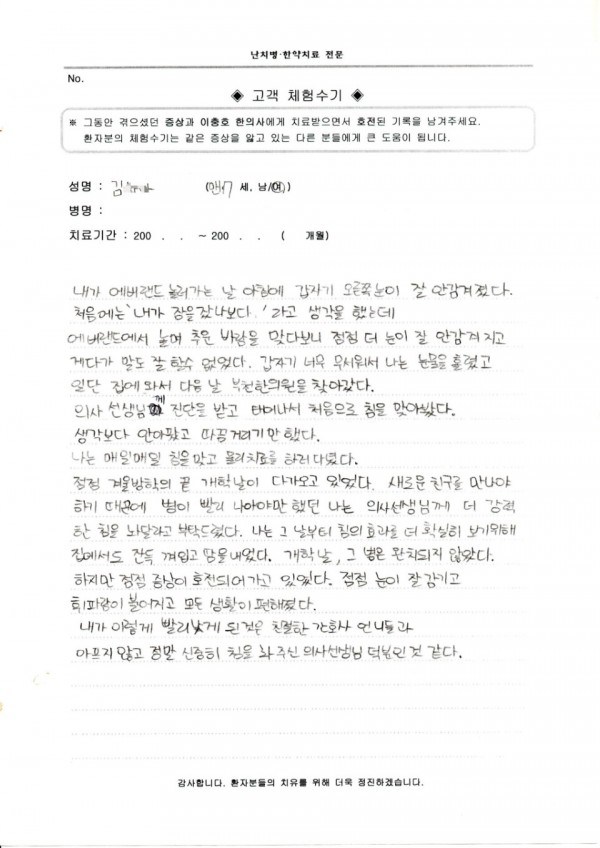 난치병·한약치료 전문
No.
◈ 고객 체험수기 ◈
※ 그동안 겪으셨던 증상과 이충호 한의사에게 치료받으면서 호전된 기록을 남겨주세요.
환자분의 체험수기는 같은 증상을 앓고 있는 다른 분들에게 큰 도움이 됩니다.
성명 : 김 (만17 세, 남/여)
병명 :
치료기간 : 200 . . ~ 200 . . ( 개월)
내가 에버랜드 놀러가는 날 아침에 갑자기 오른쪽눈이 잘 안감겨졌다.
처음에는 '내가 잠을 잤나보다.' 라고 생각을 했는데
에버랜드에서 놀며 추운 바람을 맞다보니 점점 더 눈이 잘 안감겨지고
게다가 말도 잘 할수 없었다. 갑자기 너무 무서워서 나는 눈물을 흘렸고
일단 집에 와서 다음 날 부천한의원을 찾아갔다.
의사 선생님께 진단을 받고 태어나서 처음으로 침을 맞아봤다.
생각보다 안아팠고 따끔거리기만 했다.
나는 매일매일 침을 맞고 물리치료를 하러 다녔다.
점점 겨울방학의 끝 개학날이 다가오고 있었다. 새로운 친구를 만나야
하기 때문에 병이 빨리 나아야만 했던 나는 의사선생님께 더 강력
한 침을 놔달라고 부탁드렸다. 나는 그 날부터 침의 효과를 더 확실히 보기위해
집에서도 잔뜩 껴입고 땀을 내었다. 개학날, 그 병은 완치되지 않았다.
하지만 점점 증상이 호전되어가고 있었다. 점점 눈이 잘 감기고
휘파람이 불어지고 모든 생활이 편해졌다.
내가 이렇게 빨리 낫게 된 것은 친절한 간호사 언니들과
아프지 않고 정말 신중히 침을 놔 주신 의사선생님 덕분인 것 같다.
감사합니다. 환자분들의 치유를 위해 더욱 정진하겠습니다.